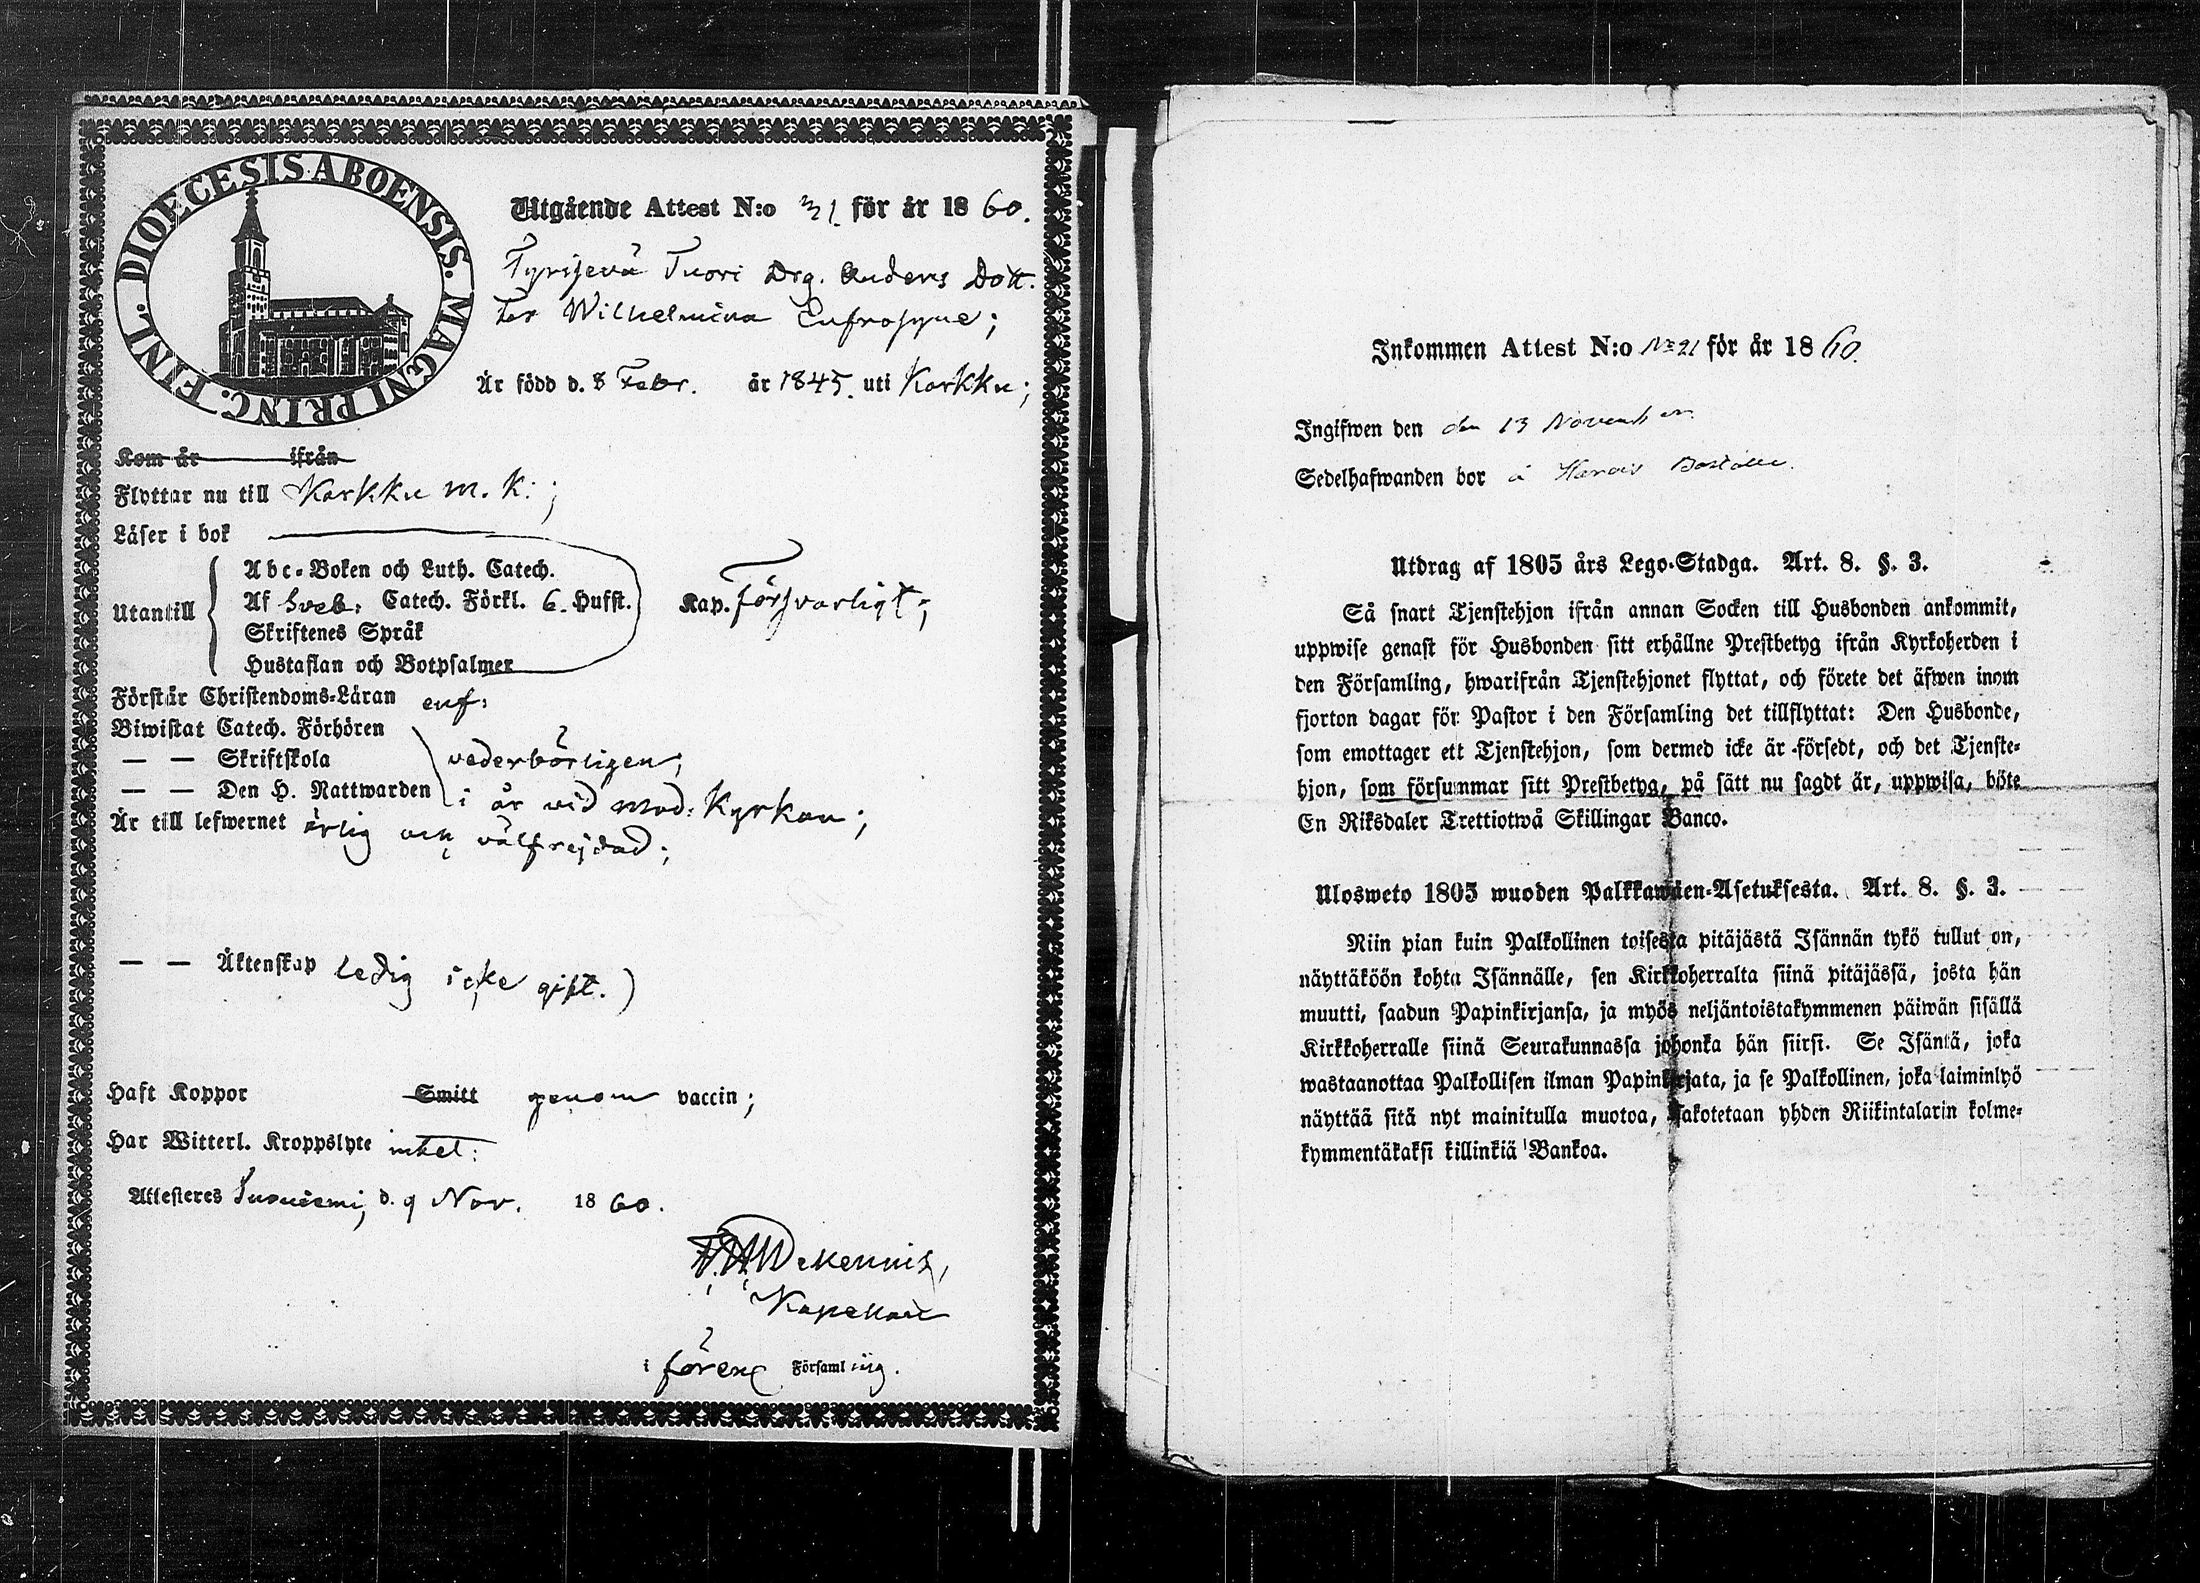 DIOECESIS ABOENSIS. MAGNI PRINC. FINL.
Utgående Attest N:o 31 för år 1860.
Tyrisevä Tuori Drg. Anders Dott.
ter Wilhelmina Eufrosyne;
Är född d. 8 Febr. år 1845. uti Karkku;
Kom år ifrån
Flyttar nu till Karkku m. k:;
Läser i bok
Utantill
Abc-Boken och Luth. Catech.
Af Sveb. Catech. Förkl. 6. Hufst. Kap. Försvarligt;
Skriftenes Språk
Hustaflan och Botpsalmer
Förstår Christendoms-Läran enf:
Biwistat Catech. Förhören
— — Skriftskola vederbörligen;
— — Den H. Nattwarden i år vid mod: Kyrkan;
Är till lefwernet ärlig och välfrejdad;
— — Äktenskap ledig icke gift.)
Haft Koppor Smitt genom vaccin;
Har Witterl. Kroppslyte intet:
Attesteres Suoniemi, d. 9 Nov. 1860.
Kapellan
i förene Församling.
Inkommen Attest N:o No 21 för år 1860.
Ingifwen den den 13 November
Sedelhafwanden bor å
Utdrag af 1805 års Lego-Stadga. Art. 8. §. 3.
Så snart Tjenstehjon ifrån annan Socken till Husbonden ankommit,
uppwise genast för Husbonden sitt erhållne Prestbetyg ifrån Kyrkoherden i
den Församling, hwarifrån Tjenstehjonet flyttat, och förete det äfwen inom
fjorton dagar för Pastor i den Församling det tillflyttat: Den Husbonde,
som emottager ett Tjenstehjon, som dermed icke är försedt, och det Tjenste-
hjon, som försummar sitt Prestbetyg, på sätt nu sagdt är, uppwisa, böte
En Riksdaler Trettiotwå Skillingar Banco.
Ulosweto 1805 wuoden Palkkawäen-Asetuksesta. Art. 8. §. 3.
Niin pian kuin Palkollinen toisesta pitäjästä Isännän tykö tullut on,
näyttäköön kohta Isännälle, sen Kirkkoherralta siinä pitäjässä, josta hän
muutti, saadun Papinkirjansa, ja myös neljäntoistakymmenen päiwän sisällä
Kirkkoherralle siinä Seurakunnassa johonka hän siirsi. Se Isäntä, joka
wastaanottaa Palkollisen ilman Papinkirjata, ja se Palkollinen, joka laiminlyö
näyttää sitä nyt mainitulla muotoa, sakotetaan yhden Riikintalarin kolme-
kymmentäkaksi killinkiä Bankoa.